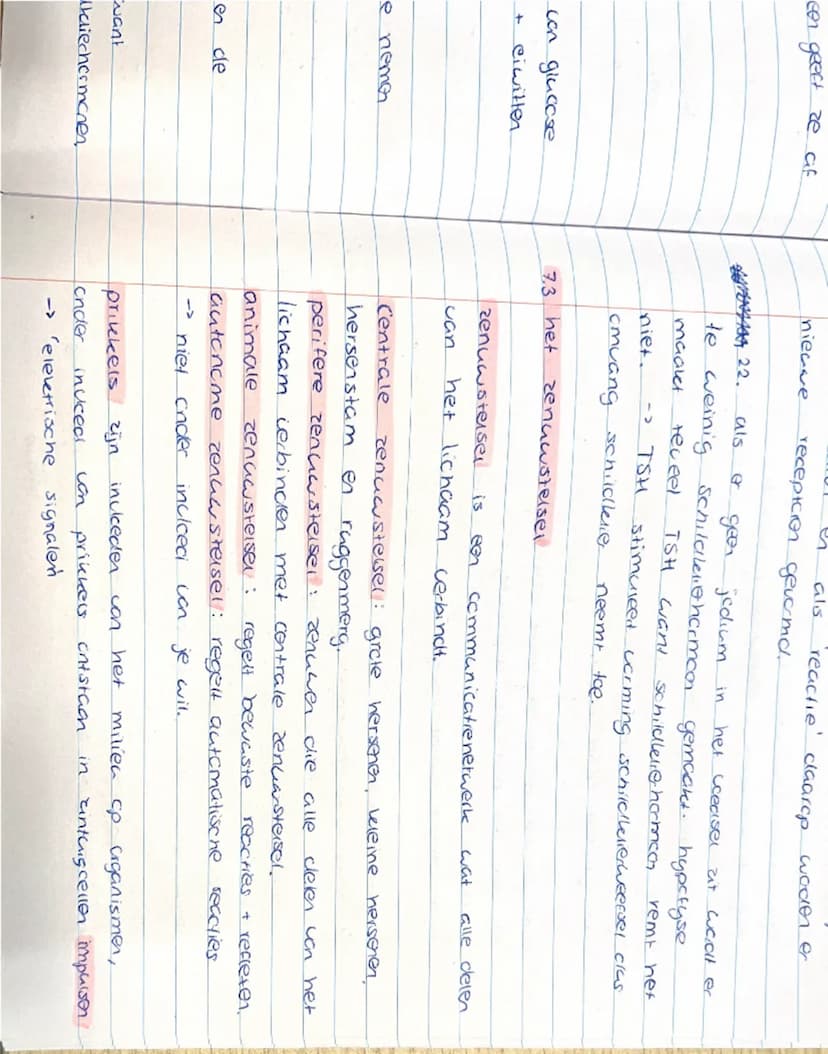 een geeft ze af
van glucose
+ eiwitten
e nemen
en de
want
klierhormonen,
en als 'reactie' daarop worden er
nieuwe receptoren gevormd.
22. als er geen jodium in het voedsel zit wordt er
te weinig schildklierhormoon gemaakt. hypofyse
maakt teveel TSH want schildklierhormoon remt het
niet. -> TSH stimuleert vorming schildklierweefsel dus
omvang schildklier neemt toe.
7.3 het zenuwstelsel
zenuwstelsel is een communicatienetwerk wat alle delen
van het lichaam verbindt.
Centrale zenuwstelsel: grote hersenen, kleine hersenen,
hersenstam en ruggenmerg.
perifere zenuwstelsel: zenuwen die alle delen van het
lichaam verbinden met centrale zenuwstelsel.
animale zenuwstelsel: regelt bewuste reacties + reflexen.
autonome zenuwstelsel: regelt automatische reacties
-> niet onder invloed van je wil.
prikkels zijn invloeden van het milieu op organismen,
onder invloed van prikkels ontstaan in zintuigcellen impulsen
-> 'elektrische signalen